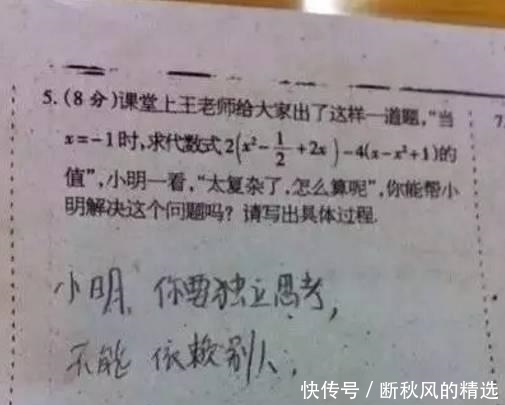 5.(8分)课堂上王老师给大家出了这样一道题,"当
7
x=-1时,求代数式2(x²-1/2+2x)-4(x-x²+1)的
值",小明一看,"太复杂了,怎么算呢",你能帮小
明解决这个问题吗?请写出具体过程.
小明,你要独立思考,
不能依赖别人.
快传号/断秋风的精选